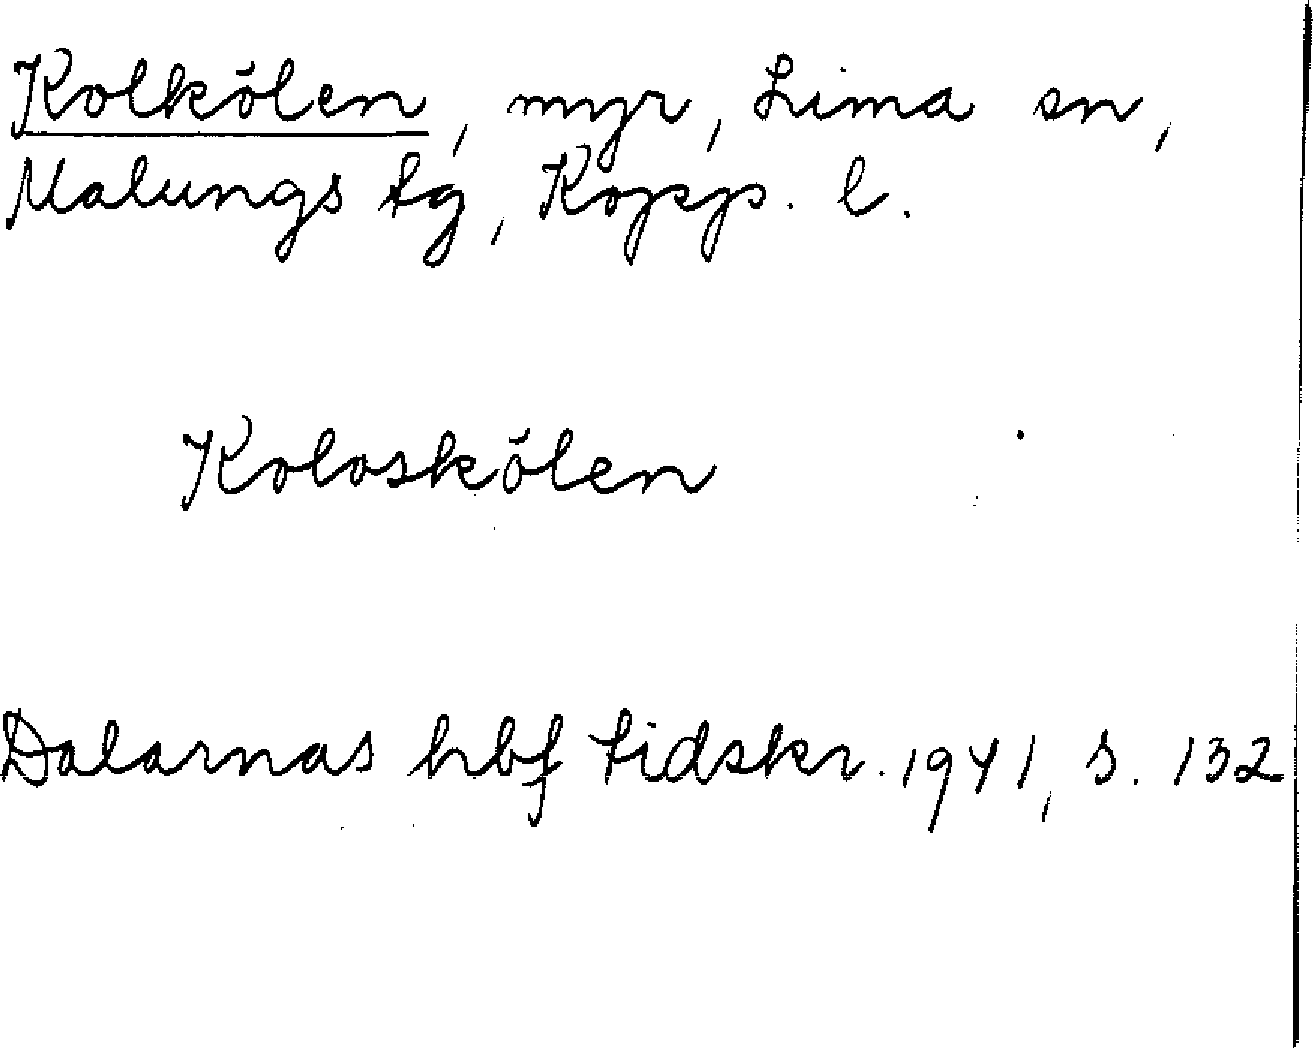 Kolkölen, myr, Lima sn,
Malungs tg, Kopp. l.
Koloskölen
Dalarnas hbf tidskr. 1941, s. 132